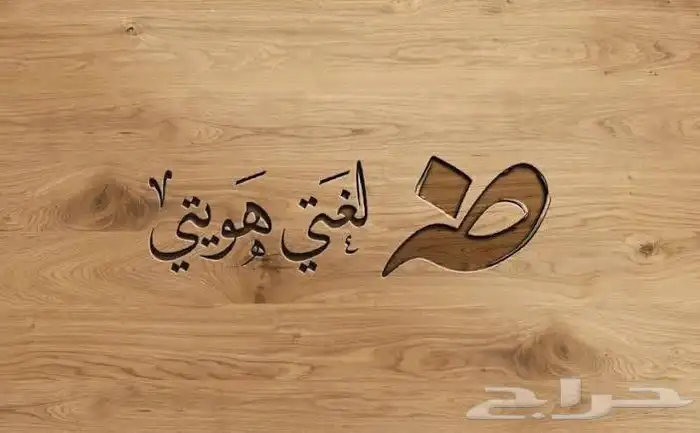 ض لغتي هويتي
حراج